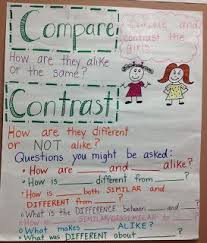 Compare
Compare and
contrast the
girls
How are they alike
or the same?
Contrast
How are they different
or NOT alike?
Questions you might be asked:
• How are ___ and ___ alike?
• How is ___ different from ___?
• How is ___ both SIMILAR and
DIFFERENT from ___?
• What is the DIFFERENCE between ___ and ___?
• How is SIMILAR to
• What makes ___ ALIKE?
• What was DIFFERENT about ___?